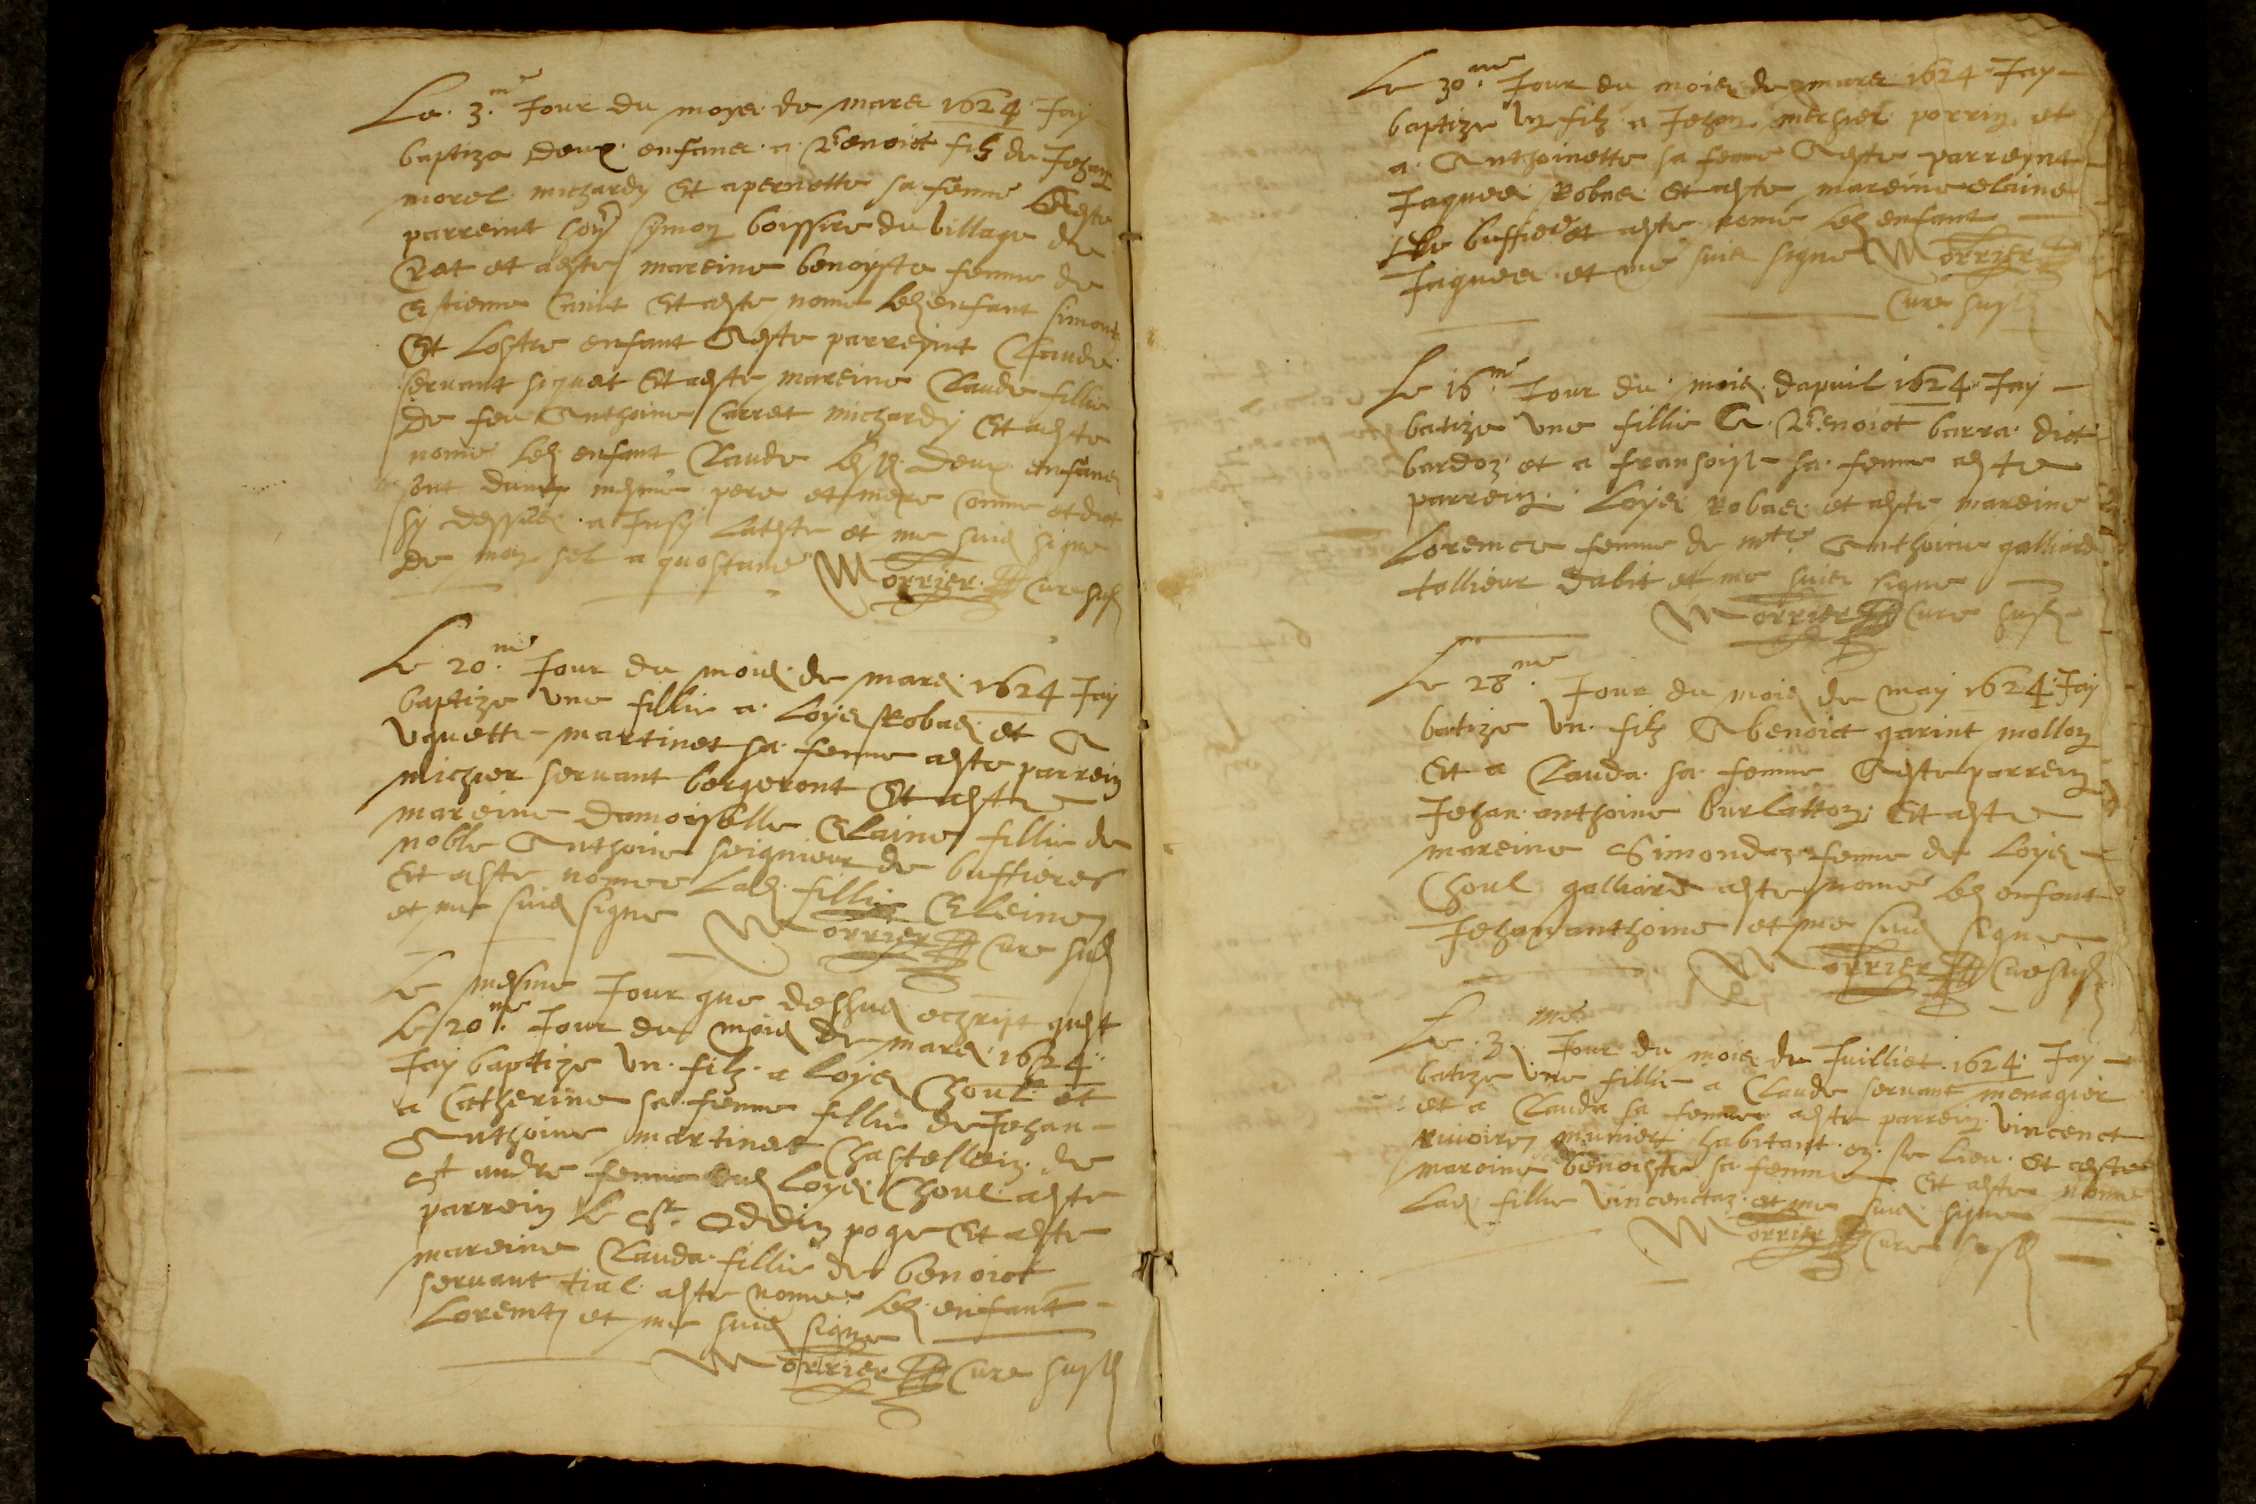 Le 3.me Jour du moys de mars 1624 Jay
baptize deux enfans a Benoict filz de Jehan
morel michardy Et a pernette sa femme A este
parreint simon boissire du village de
et a este mareine benoyste femme de
Estienne Et a este nome led enfant simont
Et lostre enfant A este parreyint Claude
servant siquet Et a este mareine Clauda fillie
de feu Anthoine Carret michardy Et a este
nome led enfant Claude deux enfans
sont dung mesme pere et mere come et dict
sy dessus a Insy lateste et me suis signe
de mon sel a quostume Morrier Cure susd
Le 20.me Jour du mois de mars 1624 Jay
baptize une fillie a Loys Robas et A
Uguette martinet sa femme a este parrein
michier servant bergeront Et a este
mareine damoiselle Elaine fillie de
noble Anthoine seignieur de buffieres
Et a este nomee lad fillie Eleine
et me suis signe Morrier Cure susd
Le mesme Jour que dessus quest
le 20.me Jour du mois de mars 1624
Jay baptize un filz a Loys Choul et
a Catherine sa femme fillie de Jehan
Anthoine martinet Chastellein de
st andre femme dud Loys Choul a este
parrein le Sr Oddin poge Et a este
mareine Clauda fillie de benoict
servant tial a este nomee led enfant
Lorentz et me suis signe
Morrier Cure susd
Le 30.me Jour du mois de mars 1624 Jay
baptize un filz a Jehan michiel perrin et
a Anthoinette sa femme A este parreynt
Jaques Robas Et a este mareine elaine
de buffiere et a este nome led enfant
Jaques et me suis signe Morrier
Cure susd
Le 16.me Jour du mois dapvril 1624 Jay
batize une fillie A Benoict barra dict
bardoz et a fransoise sa femme a este
parrein Loys Robas et a este mareine
Lorence femme de mtre Anthoine galliard
tallieur dabit et me suis signe
Morrier Cure susd
Le 28.me Jour du mois de may 1624 Jay
batize un filz A benoict garint mollon
Et a Clauda sa femme A este parrein
Jehan anthoine burlatton Et a este
mareine Simondaz femme de Loys
Choul galliard a este nome led enfant
Jehan anthoine et me suis signe
Morrier Cure susd
Le 3.me Jour du mois de Juilliet 1624 Jay
batize une fillie a Claude servant menagier
et a Clauda sa femme a este parrein vincenct
rivoire munier habitant en se lieu Et a este
mareine benoiste sa femme Et a este nome
lad fillie vincentaz et me suis signe
Morrier Cure susd